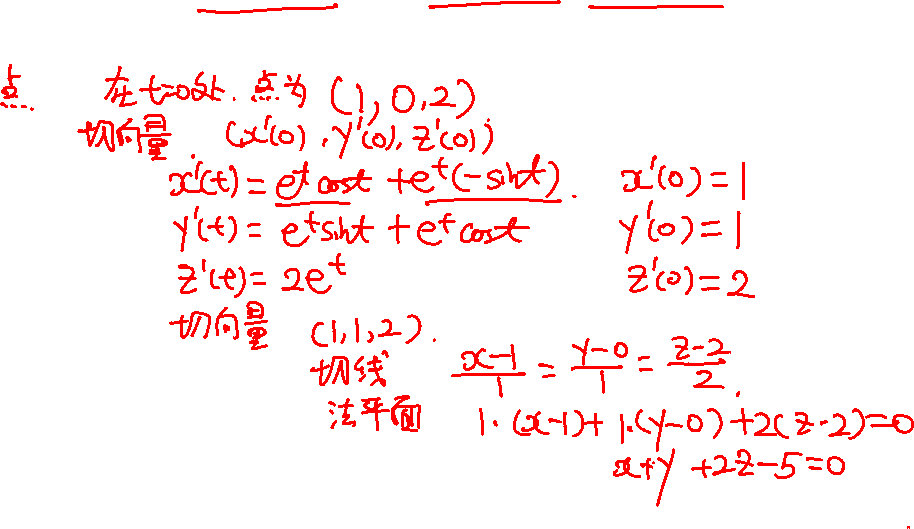 点 在t=0处. 点为 (1, 0, 2)
切向量 (x'(0), y'(0), z'(0))
x'(t) = e^t cost + e^t(-sint). x'(0) = 1
y'(t) = e^t sint + e^t cost y'(0) = 1
z'(t) = 2e^t z'(0) = 2
切向量 (1, 1, 2).
切线 (x-1)/1 = (y-0)/1 = (z-2)/2.
法平面 1·(x-1) + 1·(y-0) + 2(z-2) = 0
x+y+2z-5=0